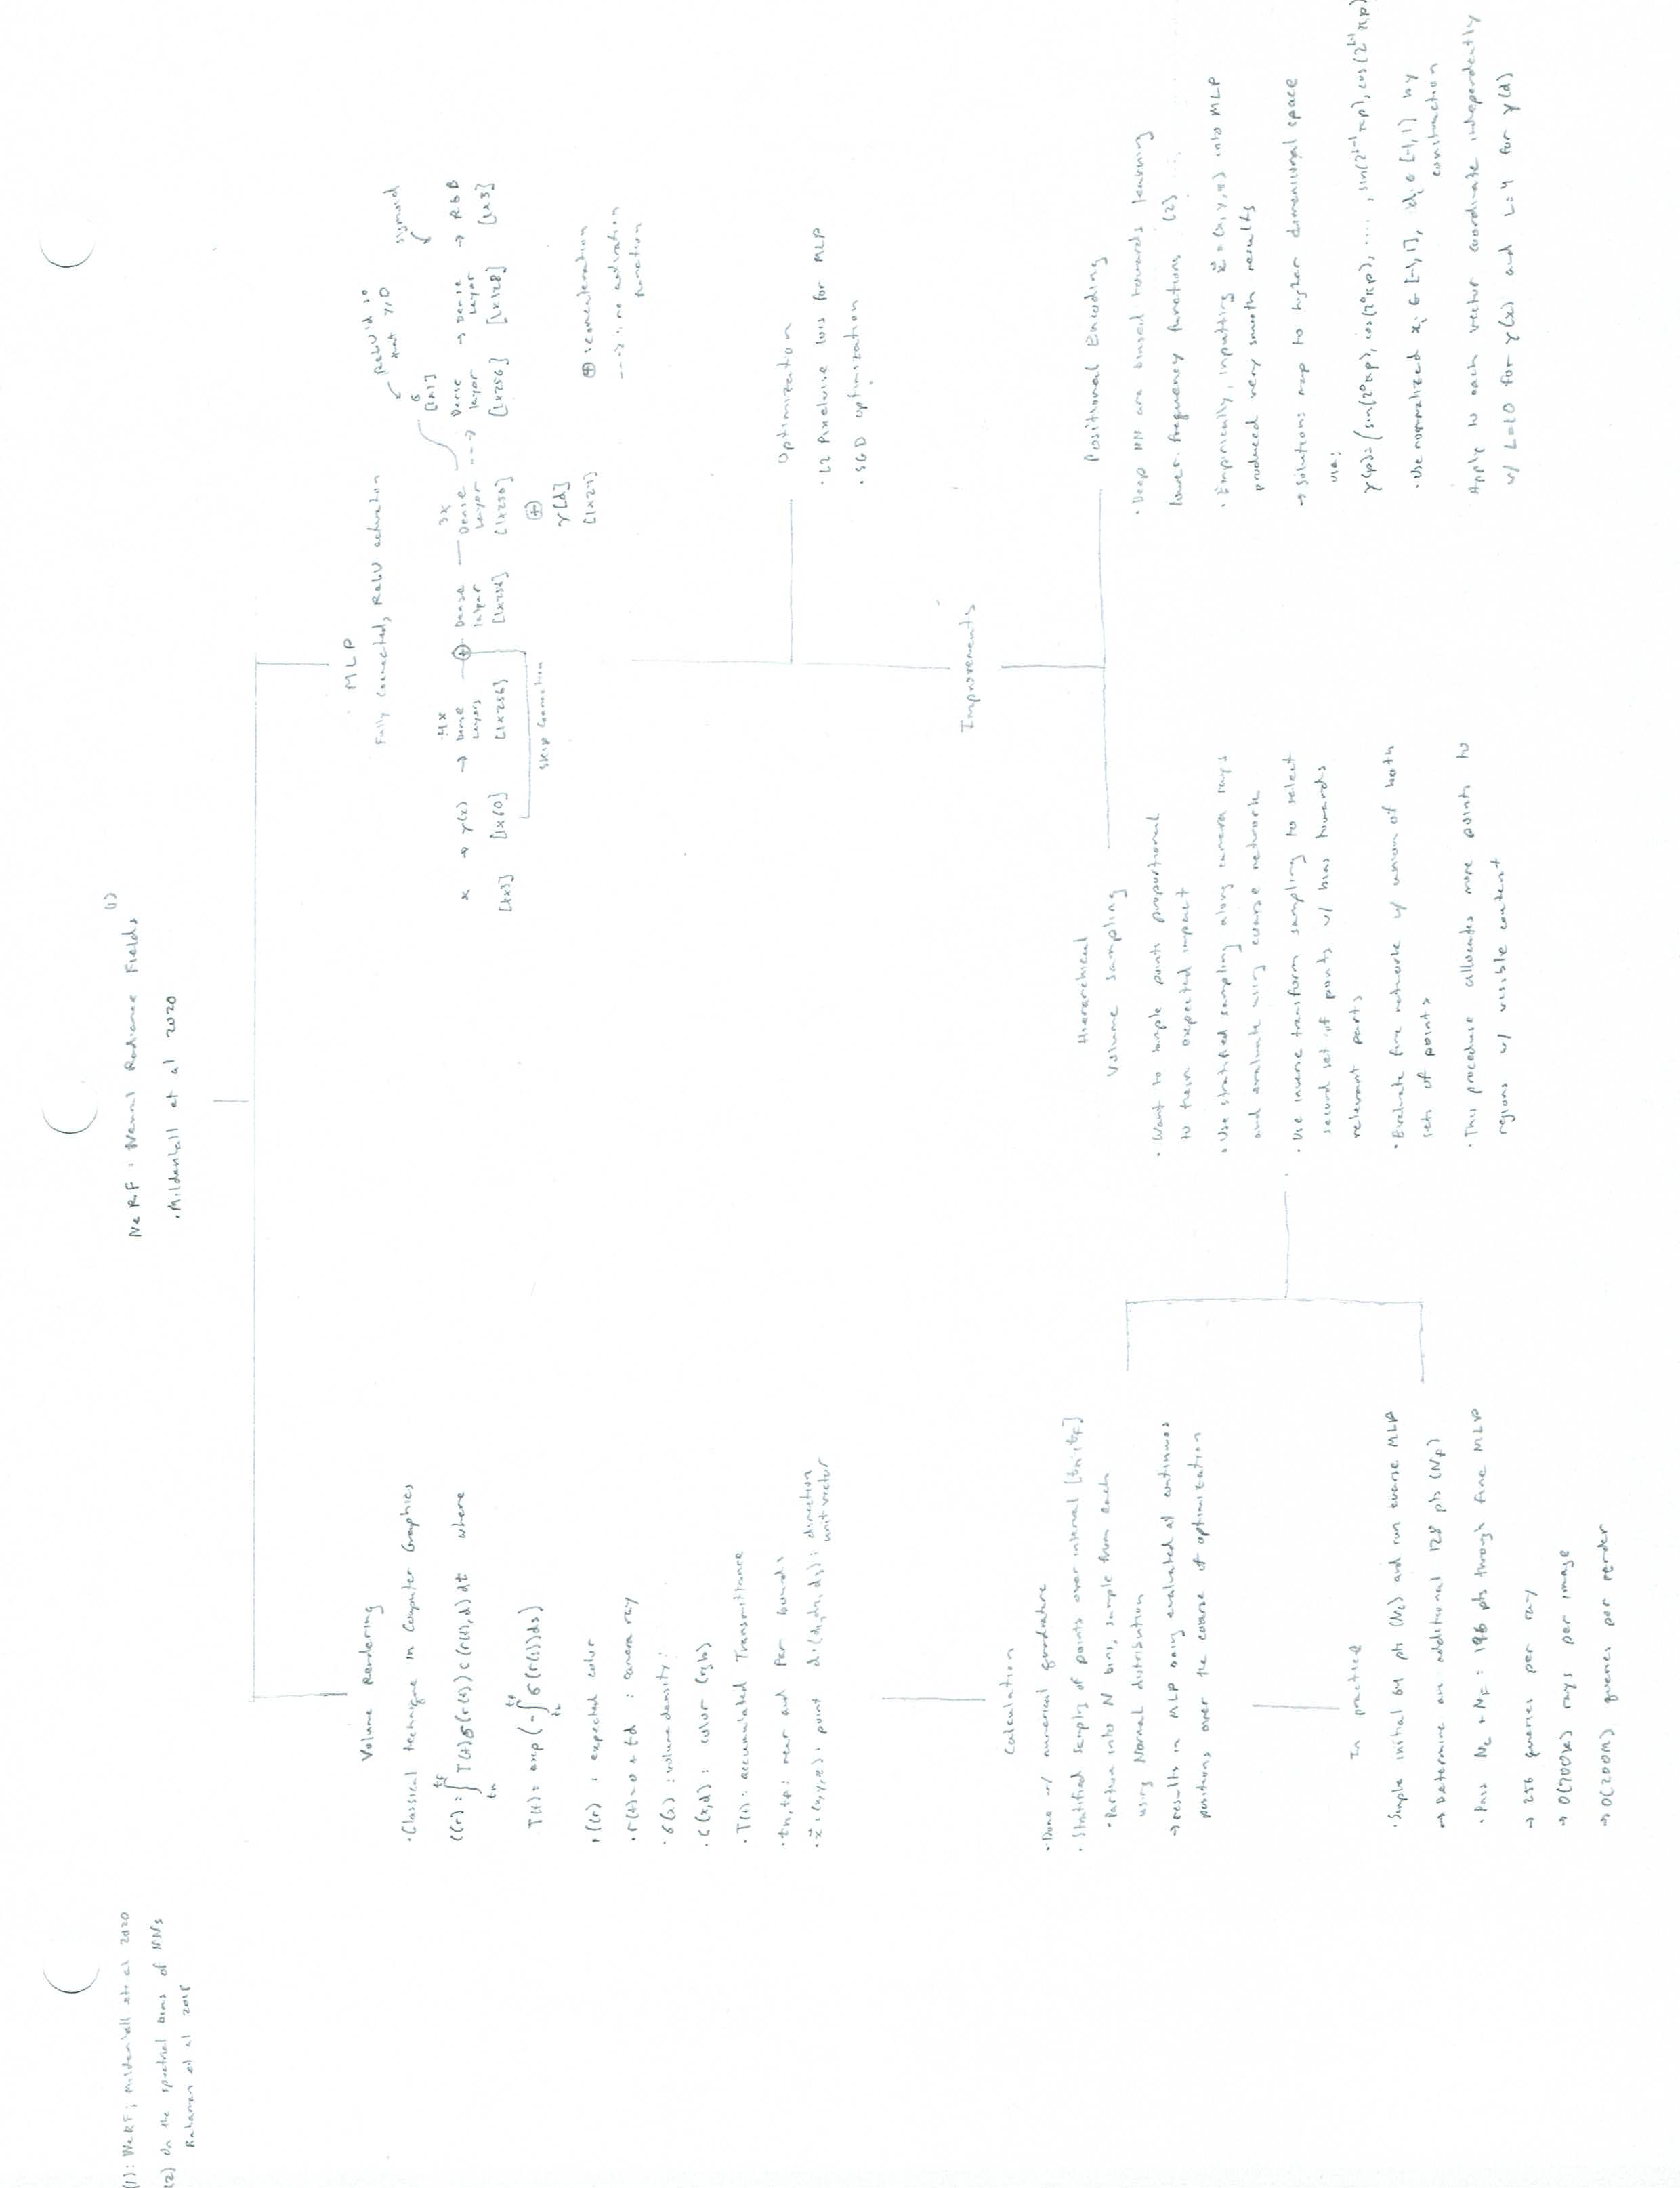 (1): NeRF; Mildenhall et al 2020
(2) On the spectral bias of NNs
Rahaman et al 2018
NeRF : Neural Radiance Fields (1)
• Mildenhall et al 2020
Volume Rendering
• Classical technique in Computer Graphics
C(r) = ∫ tn tf T(t) σ(r(t)) c(r(t), d) dt where
T(t) = exp(-∫ tn tf σ(r(s)) ds)
• C(r) : expected color
• r(t) = o + td : camera ray
• σ(x) : volume density :
• C(x,d) : color (rgb)
• T(t) : accumulated Transmittance
• tn, tf : near and far bounds
• x⃗ = (x, y, z) : point d = (d1, d2, d3) : direction unit vector
Calculation
• Done w/ numerical quadrature
• Stratified sampling of points over interval [tn, tf]
• Partition into N bins, sample from each
using Normal distribution
→ results in MLP being evaluated at continuous
positions over the coarse of optimization
In practice
• Sample initial 64 pts (Nc) and run coarse MLP
→ Determine an additional 128 pts (NF)
• Pass Nc + NF = 196 pts through fine MLP
→ 256 queries per ray
→ O(700k) rays per image
→ O(200M) queries per render
MLP
Fully Connected, ReLU activation
ReLU'd so
that ≥0
sigmoid
σ
[1x1]
x → γ(x) → 4x Dense Layers ⊕ Dense layer — 3x Dense Layer ---> Dense layer → Dense Layer → RGB
[1x3] [1x60] [1x256] [1x256] [1x256] [1x256] [1x128] [1x3]
Skip Connection
⊕
γ[d]
[1x24]
⊕ : concatenation
---> : no activation
function
Optimization
• L2 Pixelwise loss for MLP
• SGD optimization
Improvements
Hierarchical
Volume Sampling
• Want to sample points proportional
to their expected impact
• Use stratified sampling along camera rays
and evaluate using coarse network
• Use inverse transform sampling to select
second set of points w/ bias towards
relevant parts
• Evaluate fine network w/ union of both
sets of points
• This procedure allocates more points to
regions w/ visible content
Positional Encoding
• Deep NN are biased towards learning
lower frequency functions (2)
• Empirically, inputting x⃗ = (x, y, z) into MLP
produced very smooth results
→ Solution: map to higher dimensional space
via:
γ(p) = (sin(2⁰πp), cos(2⁰πp), ...., sin(2^L-1 πp), cos(2^L-1 πp)
• Use normalized xi ∈ [-1, 1], di ∈ [-1, 1) by
construction
Apply to each vector coordinate independently
w/ L=10 for γ(x) and L=4 for γ(d)